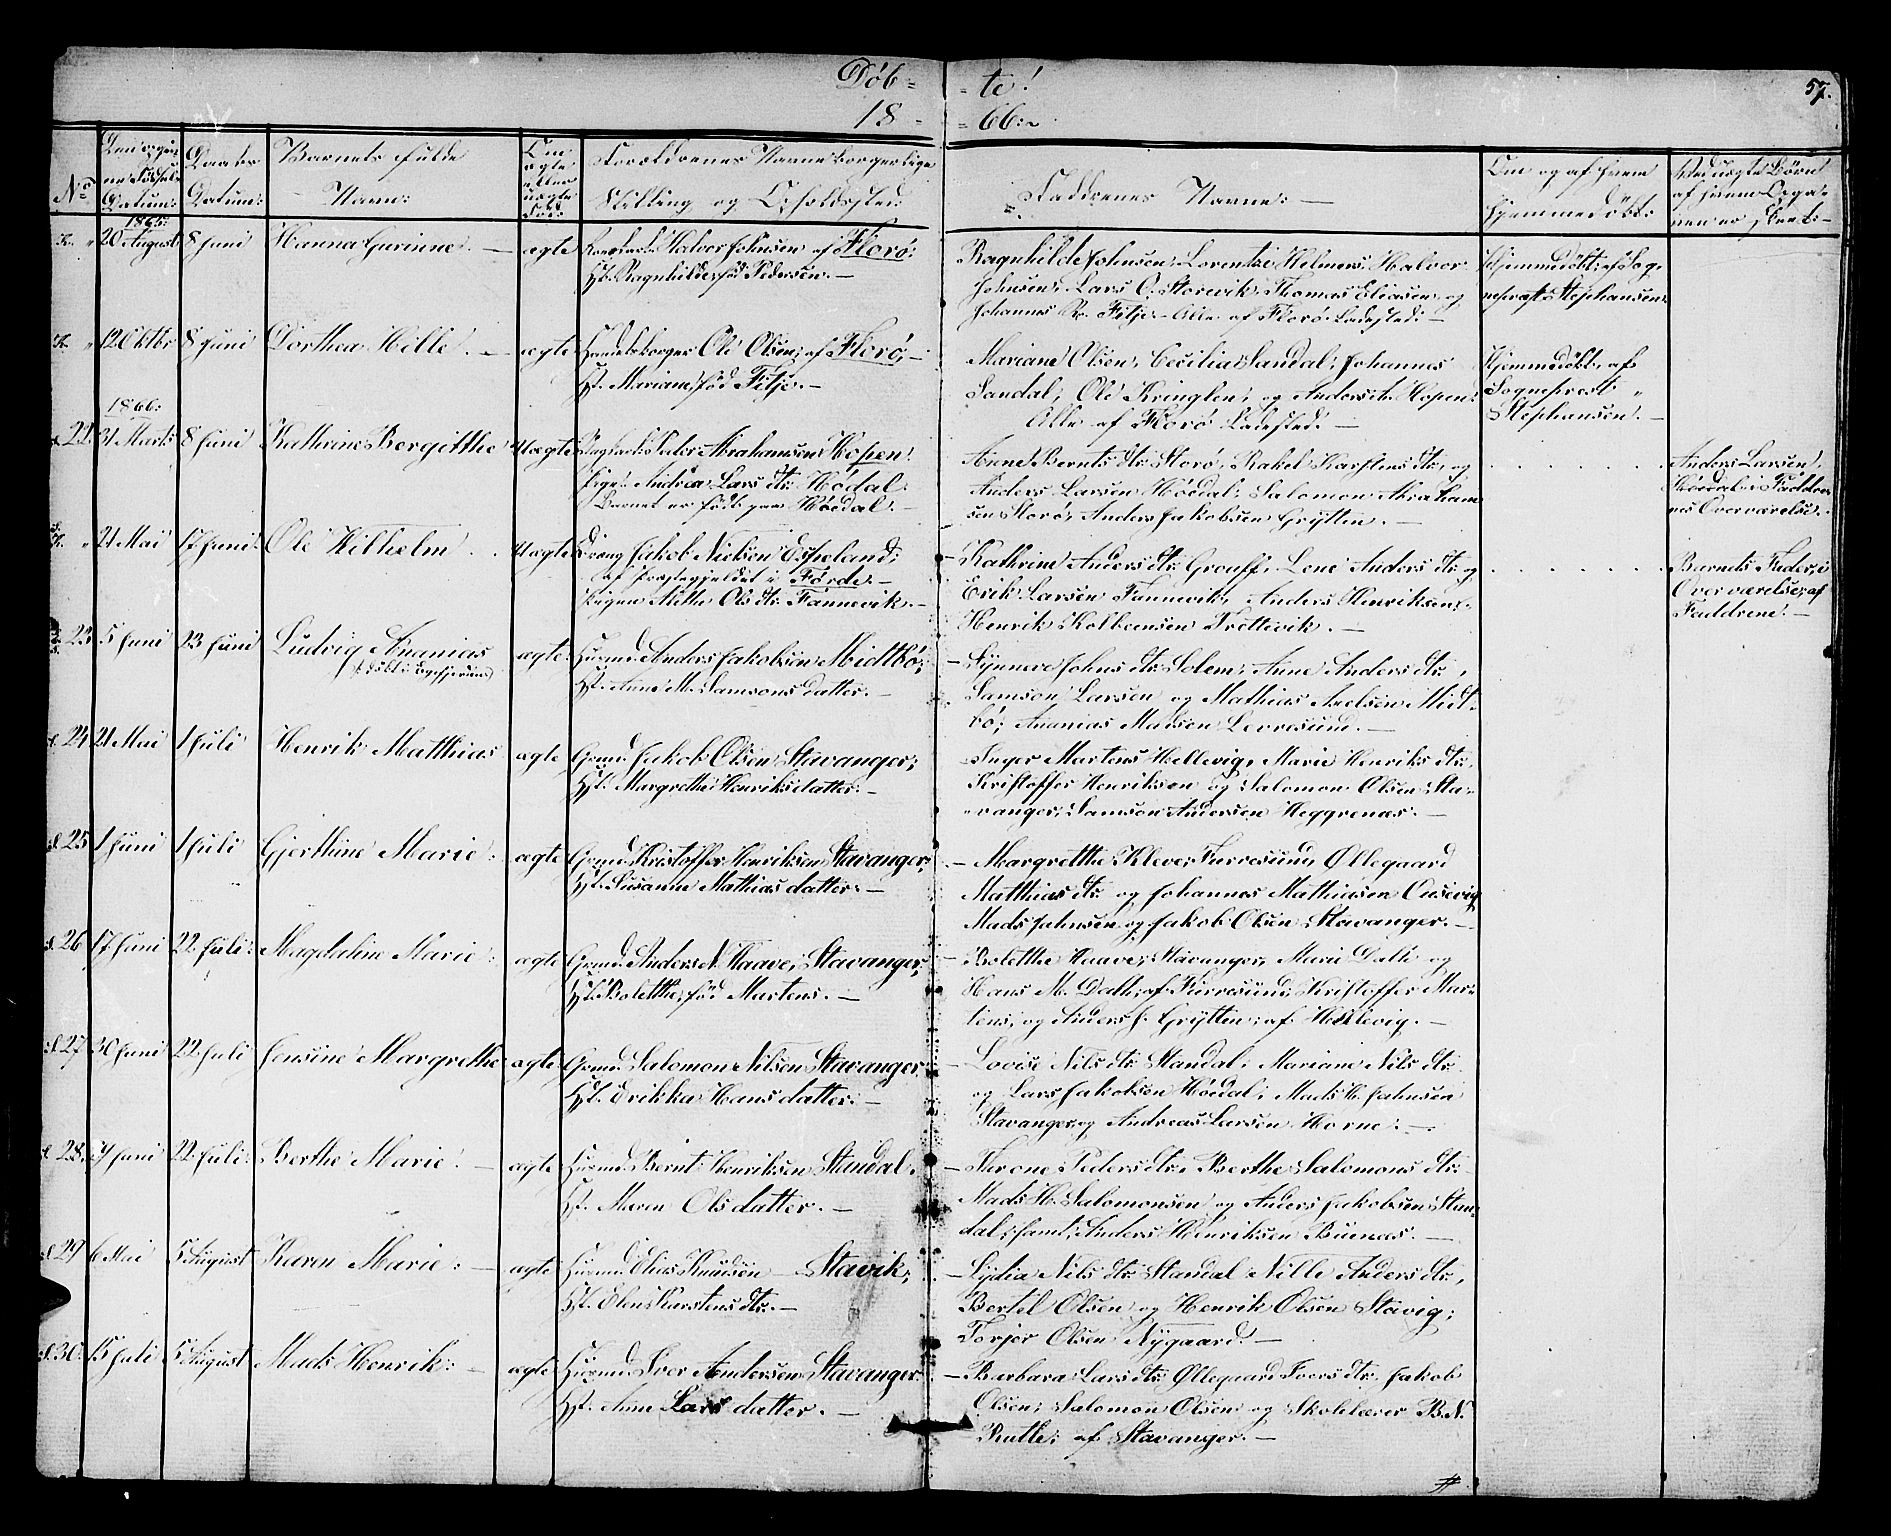 Döb- -te!
57.
18- -66:
No
Datum:
Barnets fulde
Navn:
Om
ægte
eller
uægte
Forældrenes Navne borgerlige
Stilling og Opholdssted:
Faddrenes Navne: —
Om og af hvem
hjemmedöbt:
Ved uægte Børn
af hvem Anga-
1865:
20 August 8 Juni Hanna Gurinne. — ægte Halvor Johnsen af Florø:
Hst. Ragnhilde, föd Pedersen. —
Ragnhilde Johnsen, Lorentze Helmers, Halvor
Johnsen, Lars O. Storevik, Thomas Eliasen og
Johannes R. Fitje. Alle af Florø Ladested: —
Hjemmedöbt: af Sog-
nepræst Stephansen.
12 Oktbr 8 Juni Dorthea Hille. — ægte Handelsborger Ole Olsen; af Florø; —
Hst. Mariane, föd Fitje. —
Mariane Olsen, Cecilia Sandal; Johannes
Sandal; Ole Kringlen; og Anders A. Hopen:
Alle af Florø Ladested: —
Hjemmedöbt, af
Sogneprest
Stephansen. —
1866:
22. 31 Marts 8 Juni Kathrine Bergitthe Uægte Peder Abrahamsen Hopen!
Pige: Andrea Lars dtr. Hødal.
Barnet er födt paa Høedal. —
Anne Bernts dtr. Storø, Rakel Karstens dtr., og
Anders Larsen Høedal; Salomon Abraham-
sen Storø, Anders Jakobsen Gryttin. —
Anders Larsen
Høedal i Faddre-
nes Overværelse.
21 Mai 17 Juni Ole Vilhelm Uægte Dreng Jakob Nielsen Espeland;
af Præstegjeldet i Førde. —
Pigen Anthe Ols dtr. Fannevik. —
Kathrine Anders dtr. Grouff, Lene Anders dtr. og
Erik Larsen Fannevik, Anders Henriksen,
Henrik Kolbeensen Trettevik. —
Barnets Fader, i
Overværelse af
Faddrene. —
23 5 Juni 23 Juni Ludvig Ananias ægte Huusmd. Anders Jakobsen Midtbø;
Hst. Anne M. Samsons datter. —
Synneve Johns dtr. Solem, Anne Anders dtr.,
Samson Larsen og Mathias Axelsen Midt-
bø; Ananias Madsen Levresund. —
24 21 Mai 1 Juli Henrik Matthias ægte Grmd. Jakob Olsen Stavanger;
Hst. Margrethe Henriksdatter. —
Inger Martens Hellevig, Marie Henriks dtr.,
Kristoffer Henriksen og Salomon Olsen Sta-
vanger, Samson Andersen Heggrenæs. —
25 1 Juni 1 Juli Gjerthine Marie. ægte Grmd. Kristoffer Henriksen Stavanger;
Hst. Susanne Mathias datter. —
Margrethe Klever, Furresund, Øllegaard
Matthias dtr. og Johannes Mathiasen Ousevig,
Mads Johnsen og Jakob Olsen Stavanger. —
26 17 Juni 22 Juli: Magdaline Marie. ægte Grmd. Anders N. Haave, Stavanger,
Hst. Bolethe, föd Martens. —
Bolethe Haave, Stavanger, Marie Dath og
Hans M. Dath, af Furresund; Kristoffer Mar-
tens; og Anders J. Gryttin; af Hellevig. —
27 30 Juni 22 Juli Jensine Margrethe ægte Grmd. Salomon Nilsen Stavanger
Hst. Erikka Hans datter: —
Lovise Nils dtr. Standal, Mariane Nils dtr.
og Lars Jakobsen Høedal; Mads H. Johnsen
Stavanger, og Andreas Larsen Horne: —
28. 22 Juli: Berthe Marie. — ægte Huusmd. Bernt Henriksen Standal.
Hst. Maren Ols datter. —
Throne Peders dtr. Berthe Salomons dtr.
Mads H. Salomonsen og Anders Jakobsen Stan-
dal; samt, Anders Henriksen Buenæs. —
29 6 Mai 5 August Karen Marie: — ægte Huusmd. Elias Knudsen Stavik;
Hst. Elen Karstens dtr. —
Lydia Nils dtr. Standal Nille Anders dtr.,
Bertel Olsen og Henrik Olsen Stavig;
Torjer Olsen Nygaard. —
30. 15 Juli 5 August Mads Henrik: — ægte Huusmd. Iver Andersen Stavanger
Hst. Anne Lars datter. —
Barbara Lars dtr. Øllegaard Ivers dtr. Jakob
Olsen; Salomon Olsen og Skolelærer B. N.
Rutle; af Stavanger. —